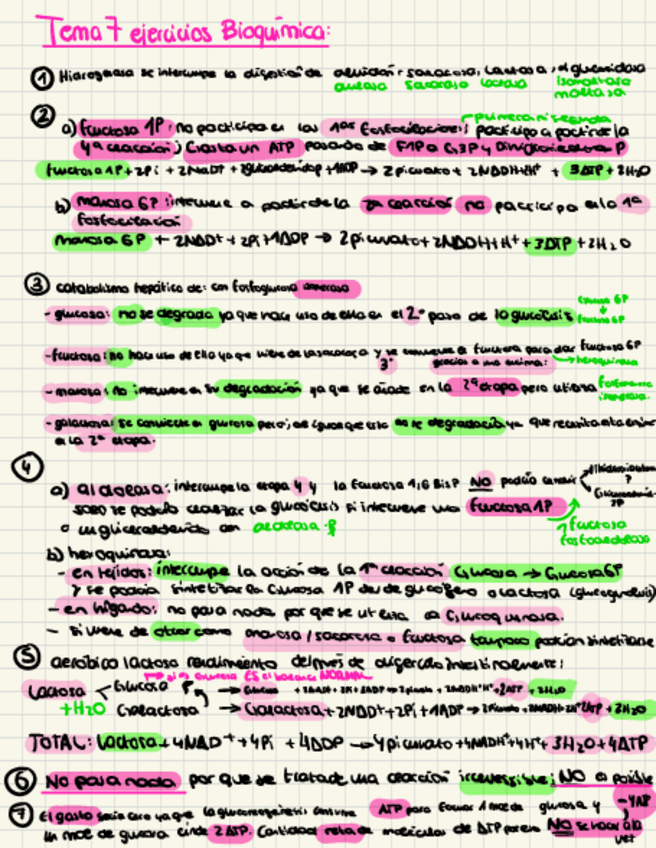 Tema 7 ejercicios Bioquímica:
① Hidrogenasa se interrumpe la digestión de almidón, sacarosa, lactosa, el glucosidasa
amilasa sacarasa lactasa isomaltasa
maltasa
② primera ni segunda
a) fructosa 1P: no participa en las 1as fosforilaciones; participa a partir de la
4ª reacción; Gasta un ATP pasando de F1P a G3P y Dihidroxiacetona P
fructosa 1P + 2Pi + 2NAD+ + + ADP → 2 piruvato + 2NADH+H+ + 3ATP + 2H2O
b) manosa 6P: interviene a partir de la 2ª reacción no participa en la 1ª
fosforilación
manosa 6P + 2NAD+ + 2Pi + ADP → 2 piruvato + 2NADH+H+ + 3ATP + 2H2O
③ catabolismo hepático de: con fosfoglucosa isomerasa
- glucosa: no se degrada ya que hace uso de ella en el 2º paso de la glucólisis
Glucosa 6P
↓
fructosa 6P
- fructosa: no hace uso de ella ya que viene de la sacarosa y se convierte a fructosa para dar fructosa 6P
3º gracias a una enzima: → hexoquinasa
- manosa: no interviene en su degradación ya que se añade en la 2ª etapa pero utiliza fosfomanosa
isomerasa
- galactosa: se convierte en glucosa pero, al igual que esta no se degrada ya que necesita esta enzima
en la 2ª etapa.
④
a) aldolasa: interrumpe la etapa 4 y la fructosa 1,6 BisP NO podría
solo se podría realizar la glucólisis si interviene una fructosa 1P
o un gliceraldehído con aldolasa
↑ fructosa
b) hexoquinasa:
- en tejidos: interrumpe la acción de la 1ª reacción Glucosa → Glucosa 6P
y se podría sintetizar la Glucosa 1P desde glucógeno o lactosa (glucogenólisis)
- en hígado: no pasa nada porque se utiliza la Glucoquinasa.
- si viene de otra como manosa / sacarosa o fructosa tampoco podrían sintetizarse
⑤ aeróbico lactosa rendimiento después de digerido intestinalmente:
glucosa ES el balance NORMAL
Lactosa Glucosa → Glucosa + 2NAD+ + 2Pi + 2ADP → 2 piruvato + 2NADH+H+ + 2ATP + 2H2O
+H2O Galactosa → Galactosa + 2NAD+ + 2Pi + 1ADP → 2 piruvato + 2NADH+2H+ 2ATP + 2H2O
TOTAL: Lactosa + 4NAD+ + 4Pi + 4ADP → 4 piruvato + 4NADH + 4H+ + 3H2O + 4ATP
⑥ No pasa nada por que se trata de una reacción irreversible; NO es posible
⑦ El gasto sería caro ya que la gluconeogénesis consume ATP para formar 1 mol de glucosa y -4ATP
un mol de glucosa rinde 2 ATP. Cantidad neta de moléculas de ATP NO se hace a la
vez